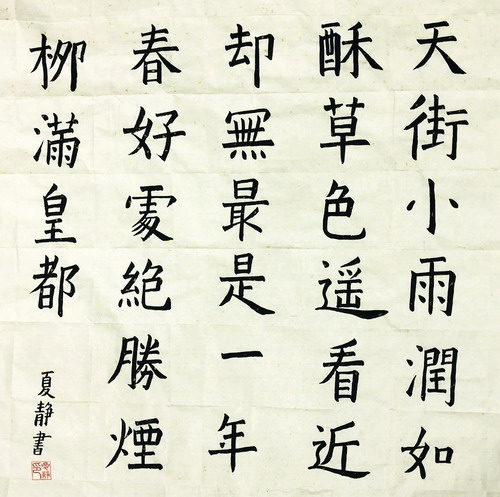 天街小雨潤如
酥草色遥看近
却無最是一年
春好處絕勝煙
柳滿皇都
夏靜書